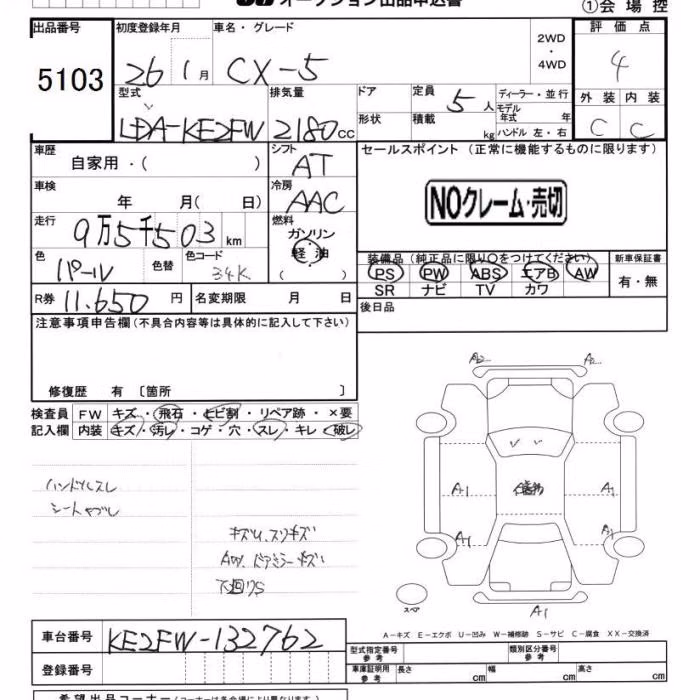 オークション出品申込書
①会場控
出品番号 初度登録年月 車名・グレード 2WD・4WD 評価点
5103 26 1月 CX-5 4
型式 排気量 ドア 定員 5人 ディーラー・並行 外装 内装
LDA-KE2FW 2180cc 形状 積載 kg モデル年式 年 ハンドル 左・右 C C
車歴 自家用・( ) シフト AT セールスポイント (正常に機能するものに限ります)
車検 年 月( 日) 冷房 AAC NOクレーム・売切
走行 9万5千503km 燃料 ガソリン 軽油 ( )
色 パール 色替 色コード 34K
装備品(純正品に限り○をつけてください) 新車保証書
PS PW ABS エアB AW 有・無
SR ナビ TV カワ
R券 11.650円 名変期限 月 日 後日品
注意事項申告欄(不具合内容等は具体的に記入して下さい)
修復歴 有〔箇所 〕
検査員 FW キズ・飛石・ヒビ割・リペア跡・×要
記入欄 内装 キズ・汚レ・コゲ・穴・スレ・キレ・破レ
ハンドルスレ
シートヤブレ
キズU、スリキズ
AW、ドアミラーキズ
下廻りS
A2 A2
A1 A1
A1 A1
スペア
A1
A-キズ E-エクボ U-凹み W-補修跡 S-サビ C-腐食 XX-交換済
車台番号 KE2FW-132762
型式指定番号 参考 類別区分番号 参考
登録番号 車庫証明用 参考 長さ cm 幅 cm 高さ cm
希望出品コーナー